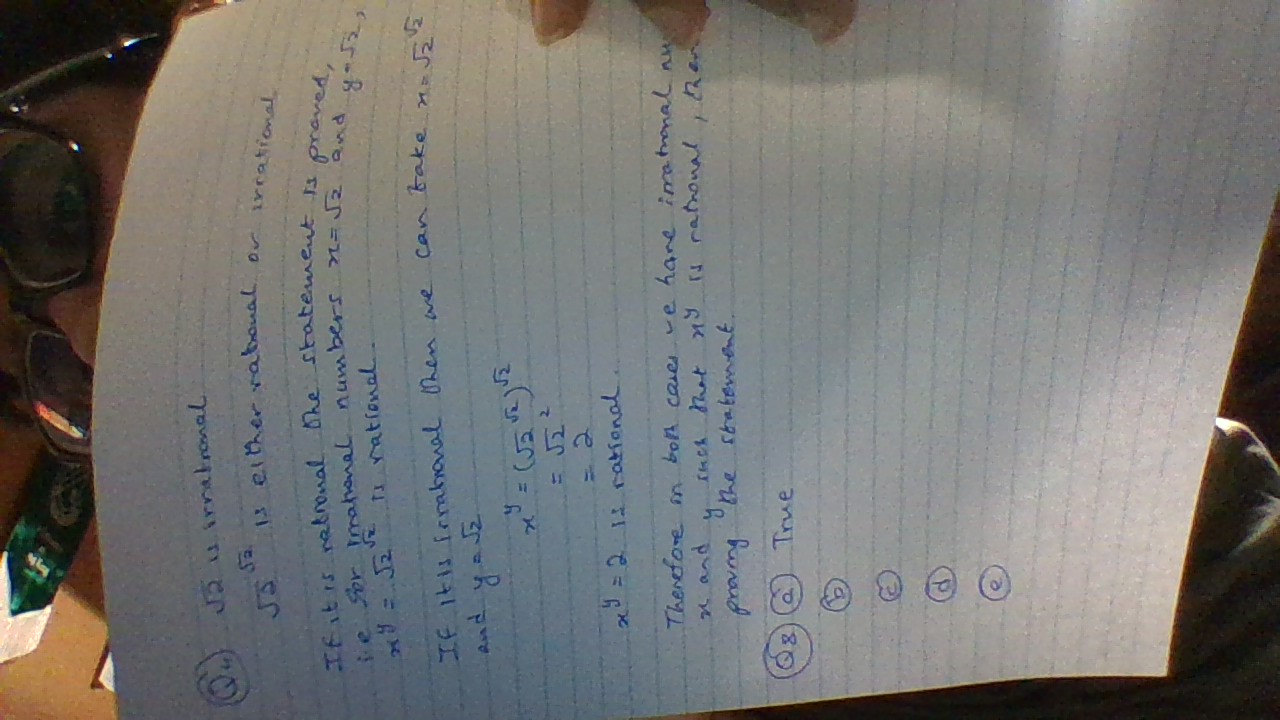 Q4 √2 is irrational
√2^√2 is either rational or irrational
If it is rational the statement is proved,
i.e for irrational numbers x=√2 and y=√2,
x^y = √2^√2 is rational.
If it is irrational then we can take x=√2^√2
and y=√2
x^y = (√2^√2)^√2
= √2^2
= 2
x^y = 2 is rational.
Therefore in both cases we have irrational nu
x and y such that x^y is rational, then
proving the statement.
Q8 a True
b
c
d
e